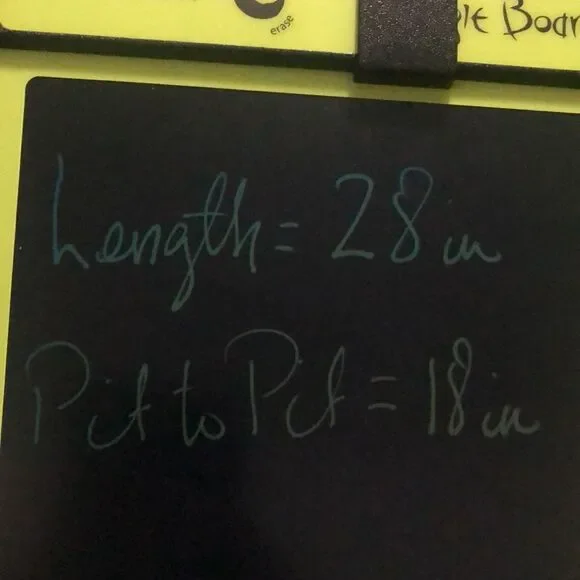 erase
Length = 28 in
Pit to Pit = 18 in